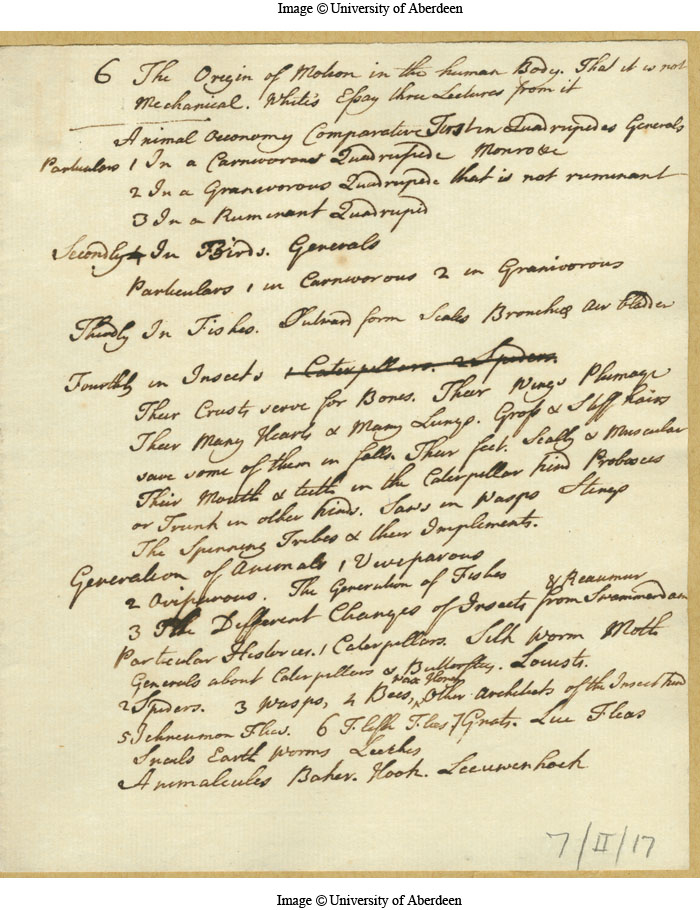 Image © University of Aberdeen
6 The Origin of Motion in the human Body. That it is not
Mechanical. White's Essay three Lectures from it
Animal Oeconomy Comparative First in Quadrupedes Generals
Particulars 1 In a Carnivorous Quadrupede Monro &c
2 In a Granivorous Quadrupede that is not ruminant
3 In a Ruminant Quadruped
Secondly In Birds. Generals
Particulars 1 in Carnivorous 2 in Granivorous
Thirdly In Fishes. Outward form Scales Bronchiæ Air bladder
Fourthly in Insects 1 Caterpillars. 2 Spiders.
Their Crusts serve for Bones. Their Wings Plumage
Their Many Hearts & Many Lungs. Gross & Stiff hairs
save some of them in falls. Their feet. Scally & Muscular
Their Mouth & teeth in the Caterpillar kind Probosces
or Trunk in other kinds. Saws in Wasps Stings
The Spinning Tribes & their Implements.
Generation of Animals 1 Viviparous
2 Oviparous. The Generation of Fishes
& Reaumur
3 The Different Changes of Insects from Swammerdam
Particular Histories. 1 Caterpillars. Silk Worm Moth
Generals about Caterpillars & Butterflys. Locusts.
wax Honey
2 Spiders. 3 Wasps, 4 Bees, Other Architects of the Insect kind
5 Ichneumon Flies. 6 Flesh Flies 7 Gnats. Lice Fleas
Snails Earth Worms Leeches
Animalcules Baker. Hook. Leeuwenhoek
7/II/17
Image © University of Aberdeen